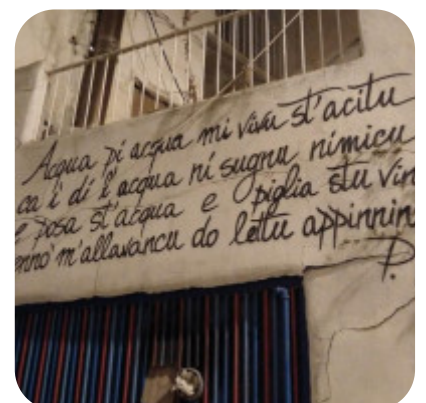 Acqua pi acqua mi vivu st'acitu
ca i di l'acqua ni sugnu nimicu
e posa st'acqua e piglia stu vin
enno' m'allavancu do lettu appinnin
P.